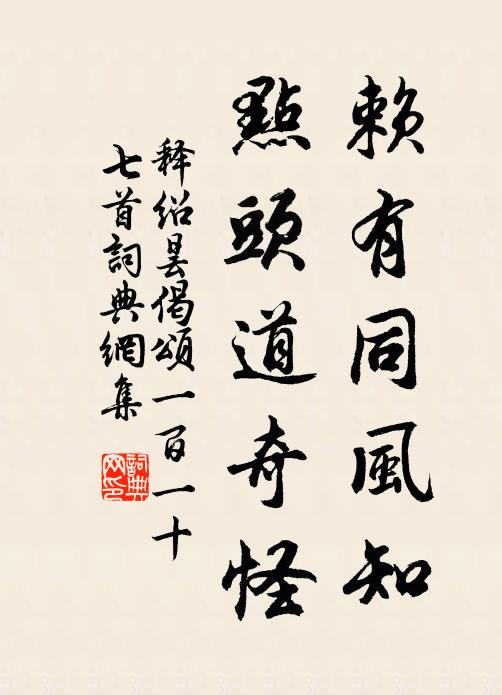 賴有同風知
點頭道奇怪
释绍昙偈頌一百一十
七首詞典網集
詞典网印